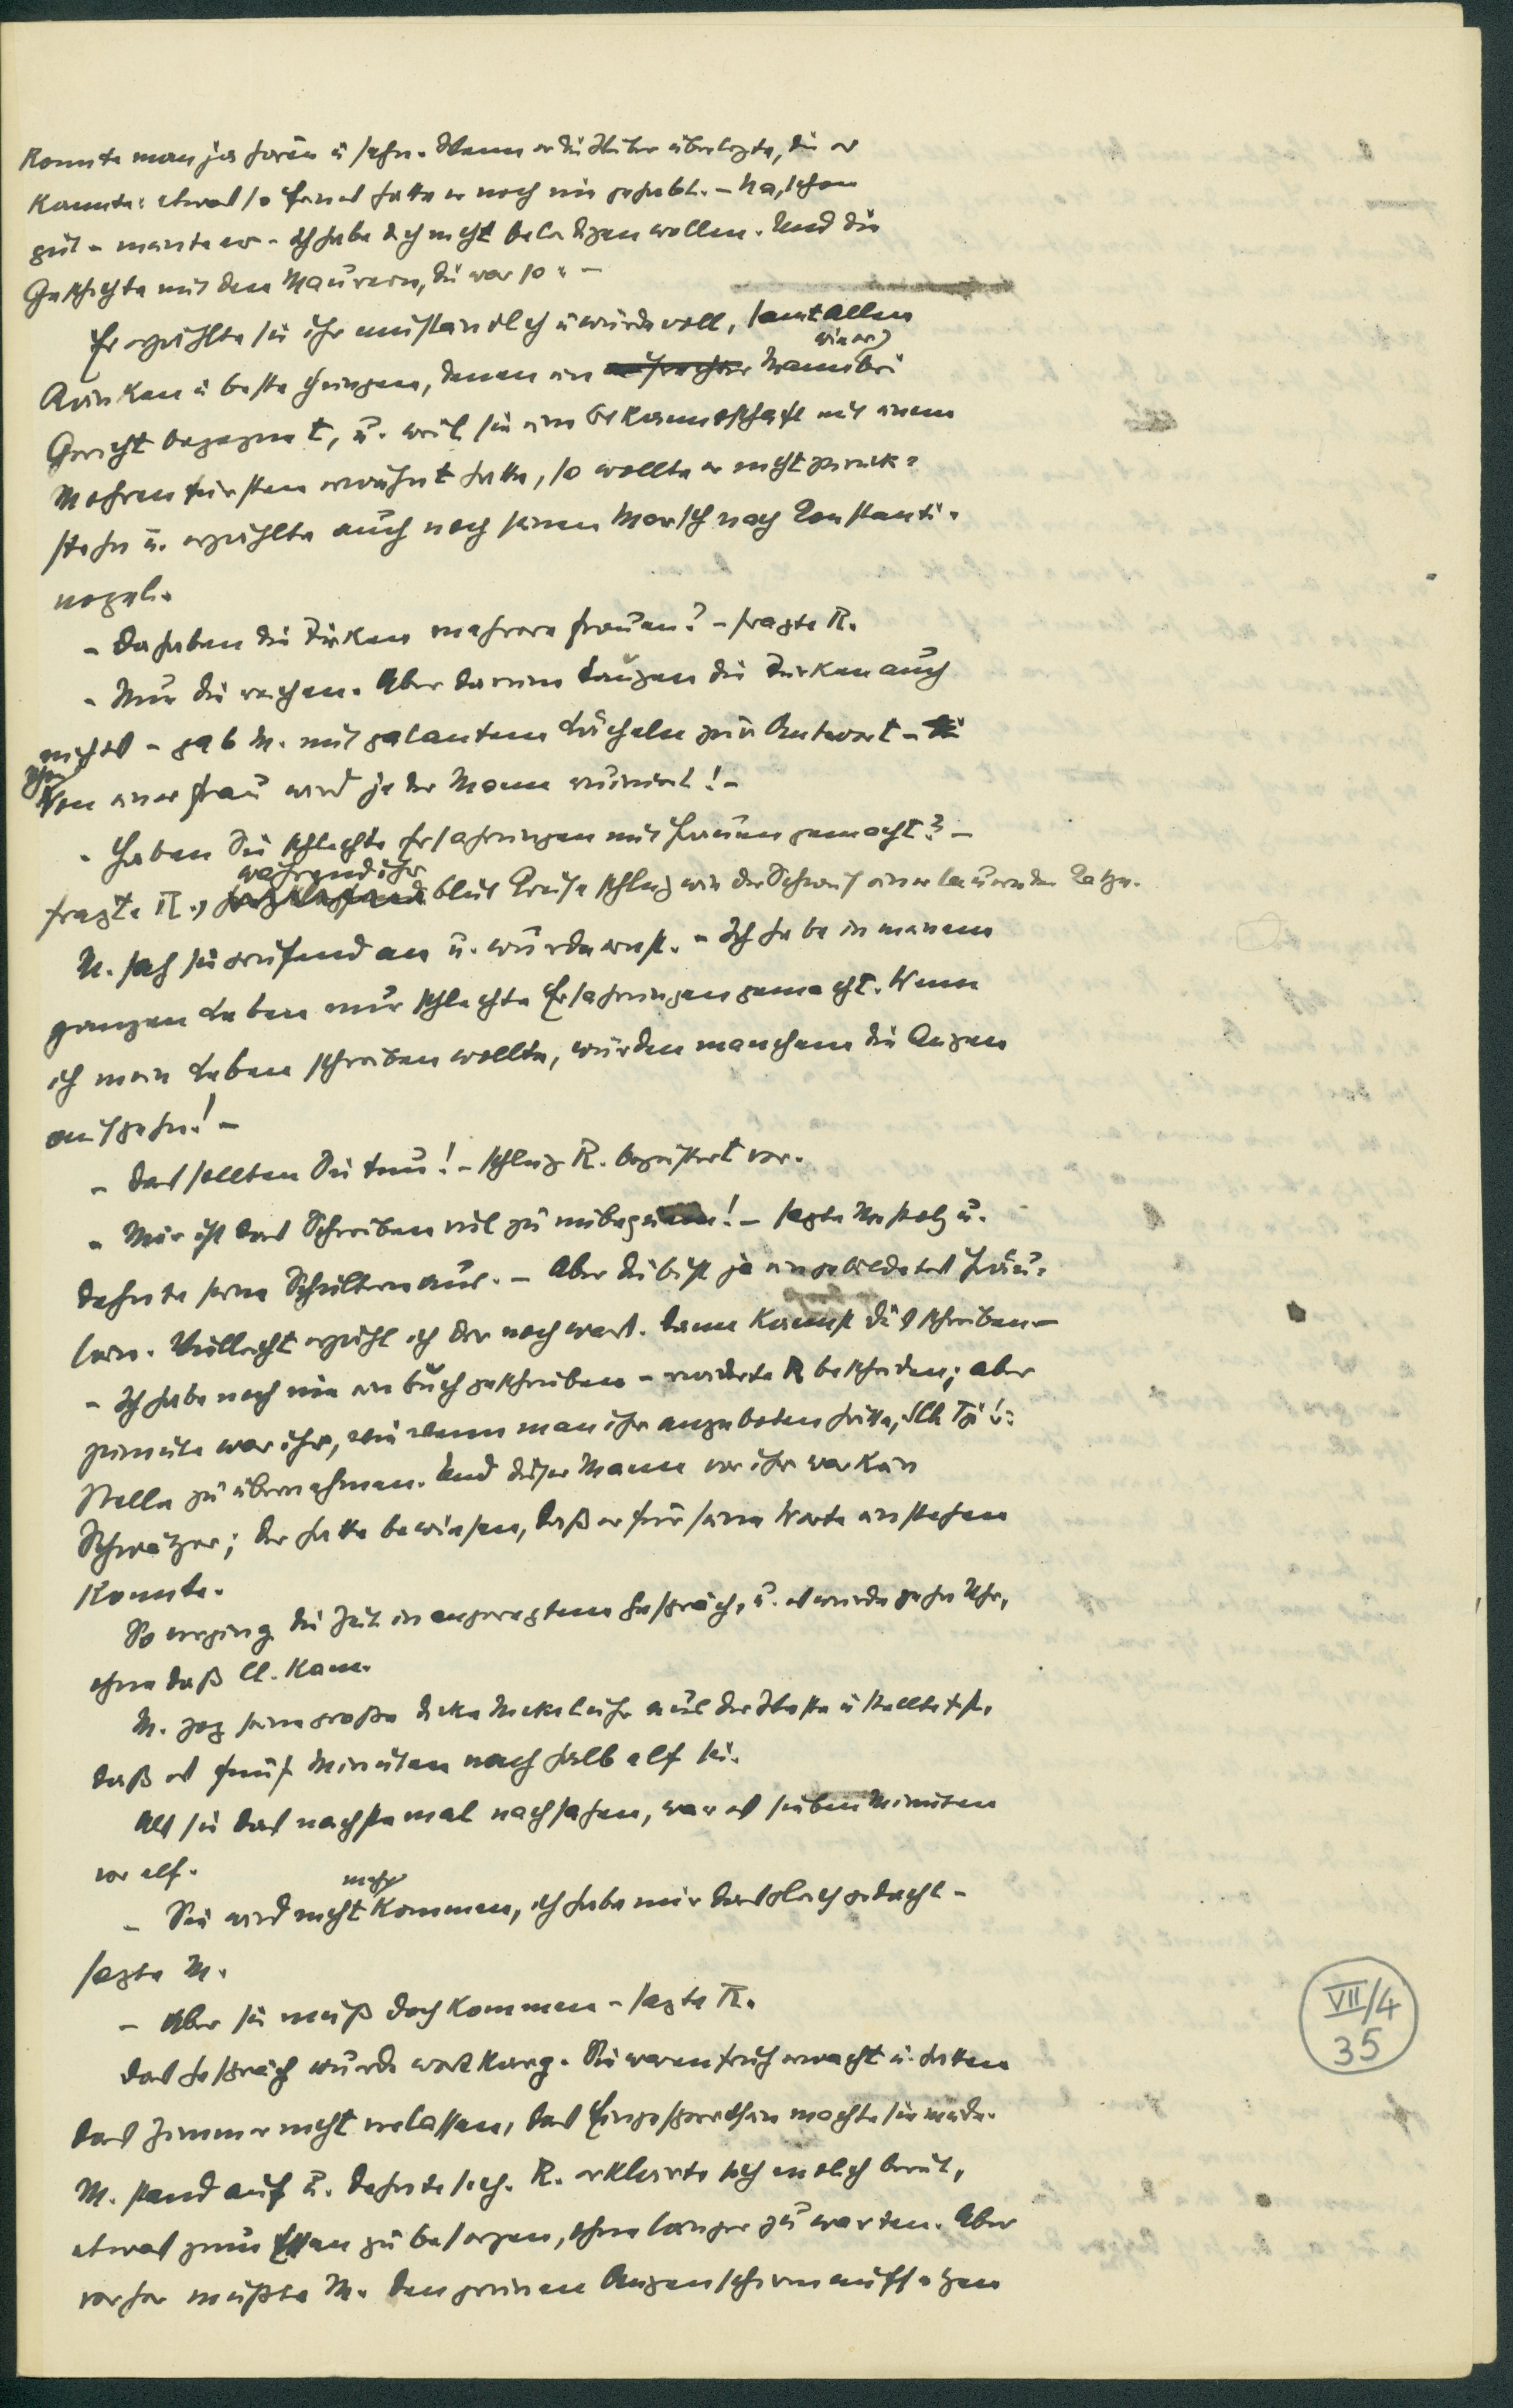 konnte man ja hören u sehn. Wenn er die Weiber überlegte, die er
kannte: etwas so Feines hatte er noch nie gehabt. – Na, schon
gut – meinte er – Ich habe dich nicht beleidigen wollen. Und die
Geschichte mit den Maurern, die war so: –
Er erzählte sie ihr umständlich u würdevoll, samt allen
Ränken u Bestechungen, denen ein Mann bei
wie er
Gericht begegnet, u. weil sie eine Bekanntschaft mit einem
Mohrenfürsten erwähnt hatte, so wollte er nicht zurück=
stehn u. erzählte auch noch seinen Marsch nach Constanti=
nopel.
– Da haben die Türken mehrere Frauen? – fragte R.
– Nur die reichen. Aber darum taugen die Türken auch
nichts – gab M. mit galantem Lächeln zur Antwort –
Von einer Frau wird jeder Mann ruiniert! –
– Haben Sie schlechte Erfahrungen mit Frauen gemacht? –
während ihr
fragte R., Blut Kreise schlug wie der Schweif einer lauernden Katze.
M. sah sie prüfend an u. wurde ernst. – Ich habe in meinem
ganzen Leben nur schlechte Erfahrungen gemacht. Wenn
ich mein Leben schreiben wollte, würden manchem die Augen
aufgehn! –
– Das sollten Sie tun! – schlug R. begeistert vor.
– Mir ist das Schreiben viel zu unbequem! – sagte M stolz u.
dehnte seine Schultern aus. – Aber du bist ja ein gebildetes Fräu=
lein. Vielleicht erzähl ich dir noch was. Dann kannst du's schreiben –
– Ich habe noch nie ein Buch geschrieben – erwiderte R bescheiden; aber
zumute war ihr, wie wenn man ihr angeboten hätte,
Stelle zu übernehmen. Und dieser Mann vor ihr war kein
Schwätzer; der hatte bewiesen, daß er für seine Worte einstehen
konnte.
So verging die Zeit in angeregtem Gespräch, u. es wurde zehn Uhr,
ohne daß Cl. kam.
M. zog seine große dicke Nickeluhr aus der Weste u stellte fest,
daß es fünf Minuten nach halb elf sei.
Als sie das nächste mal nachsahen, war es sieben Minuten
vor elf.
mehr
– Sie wird nicht kommen, ich habe mir das gleich gedacht –
sagte M.
– Aber sie muß doch kommen – sagte R.
Das Gespräch wurde wortkarg. Sie waren früh erwacht u. hatten
das Zimmer nicht verlassen, das Eingesperrtsein machte sie müde.
M. stand auf u. dehnte sich. R. erklärte sich endlich bereit,
etwas zum Essen zu besorgen, ohne länger zu warten. Aber
vorher mußte M. den grünen Augenschirm aufsetzen
VII/4
35